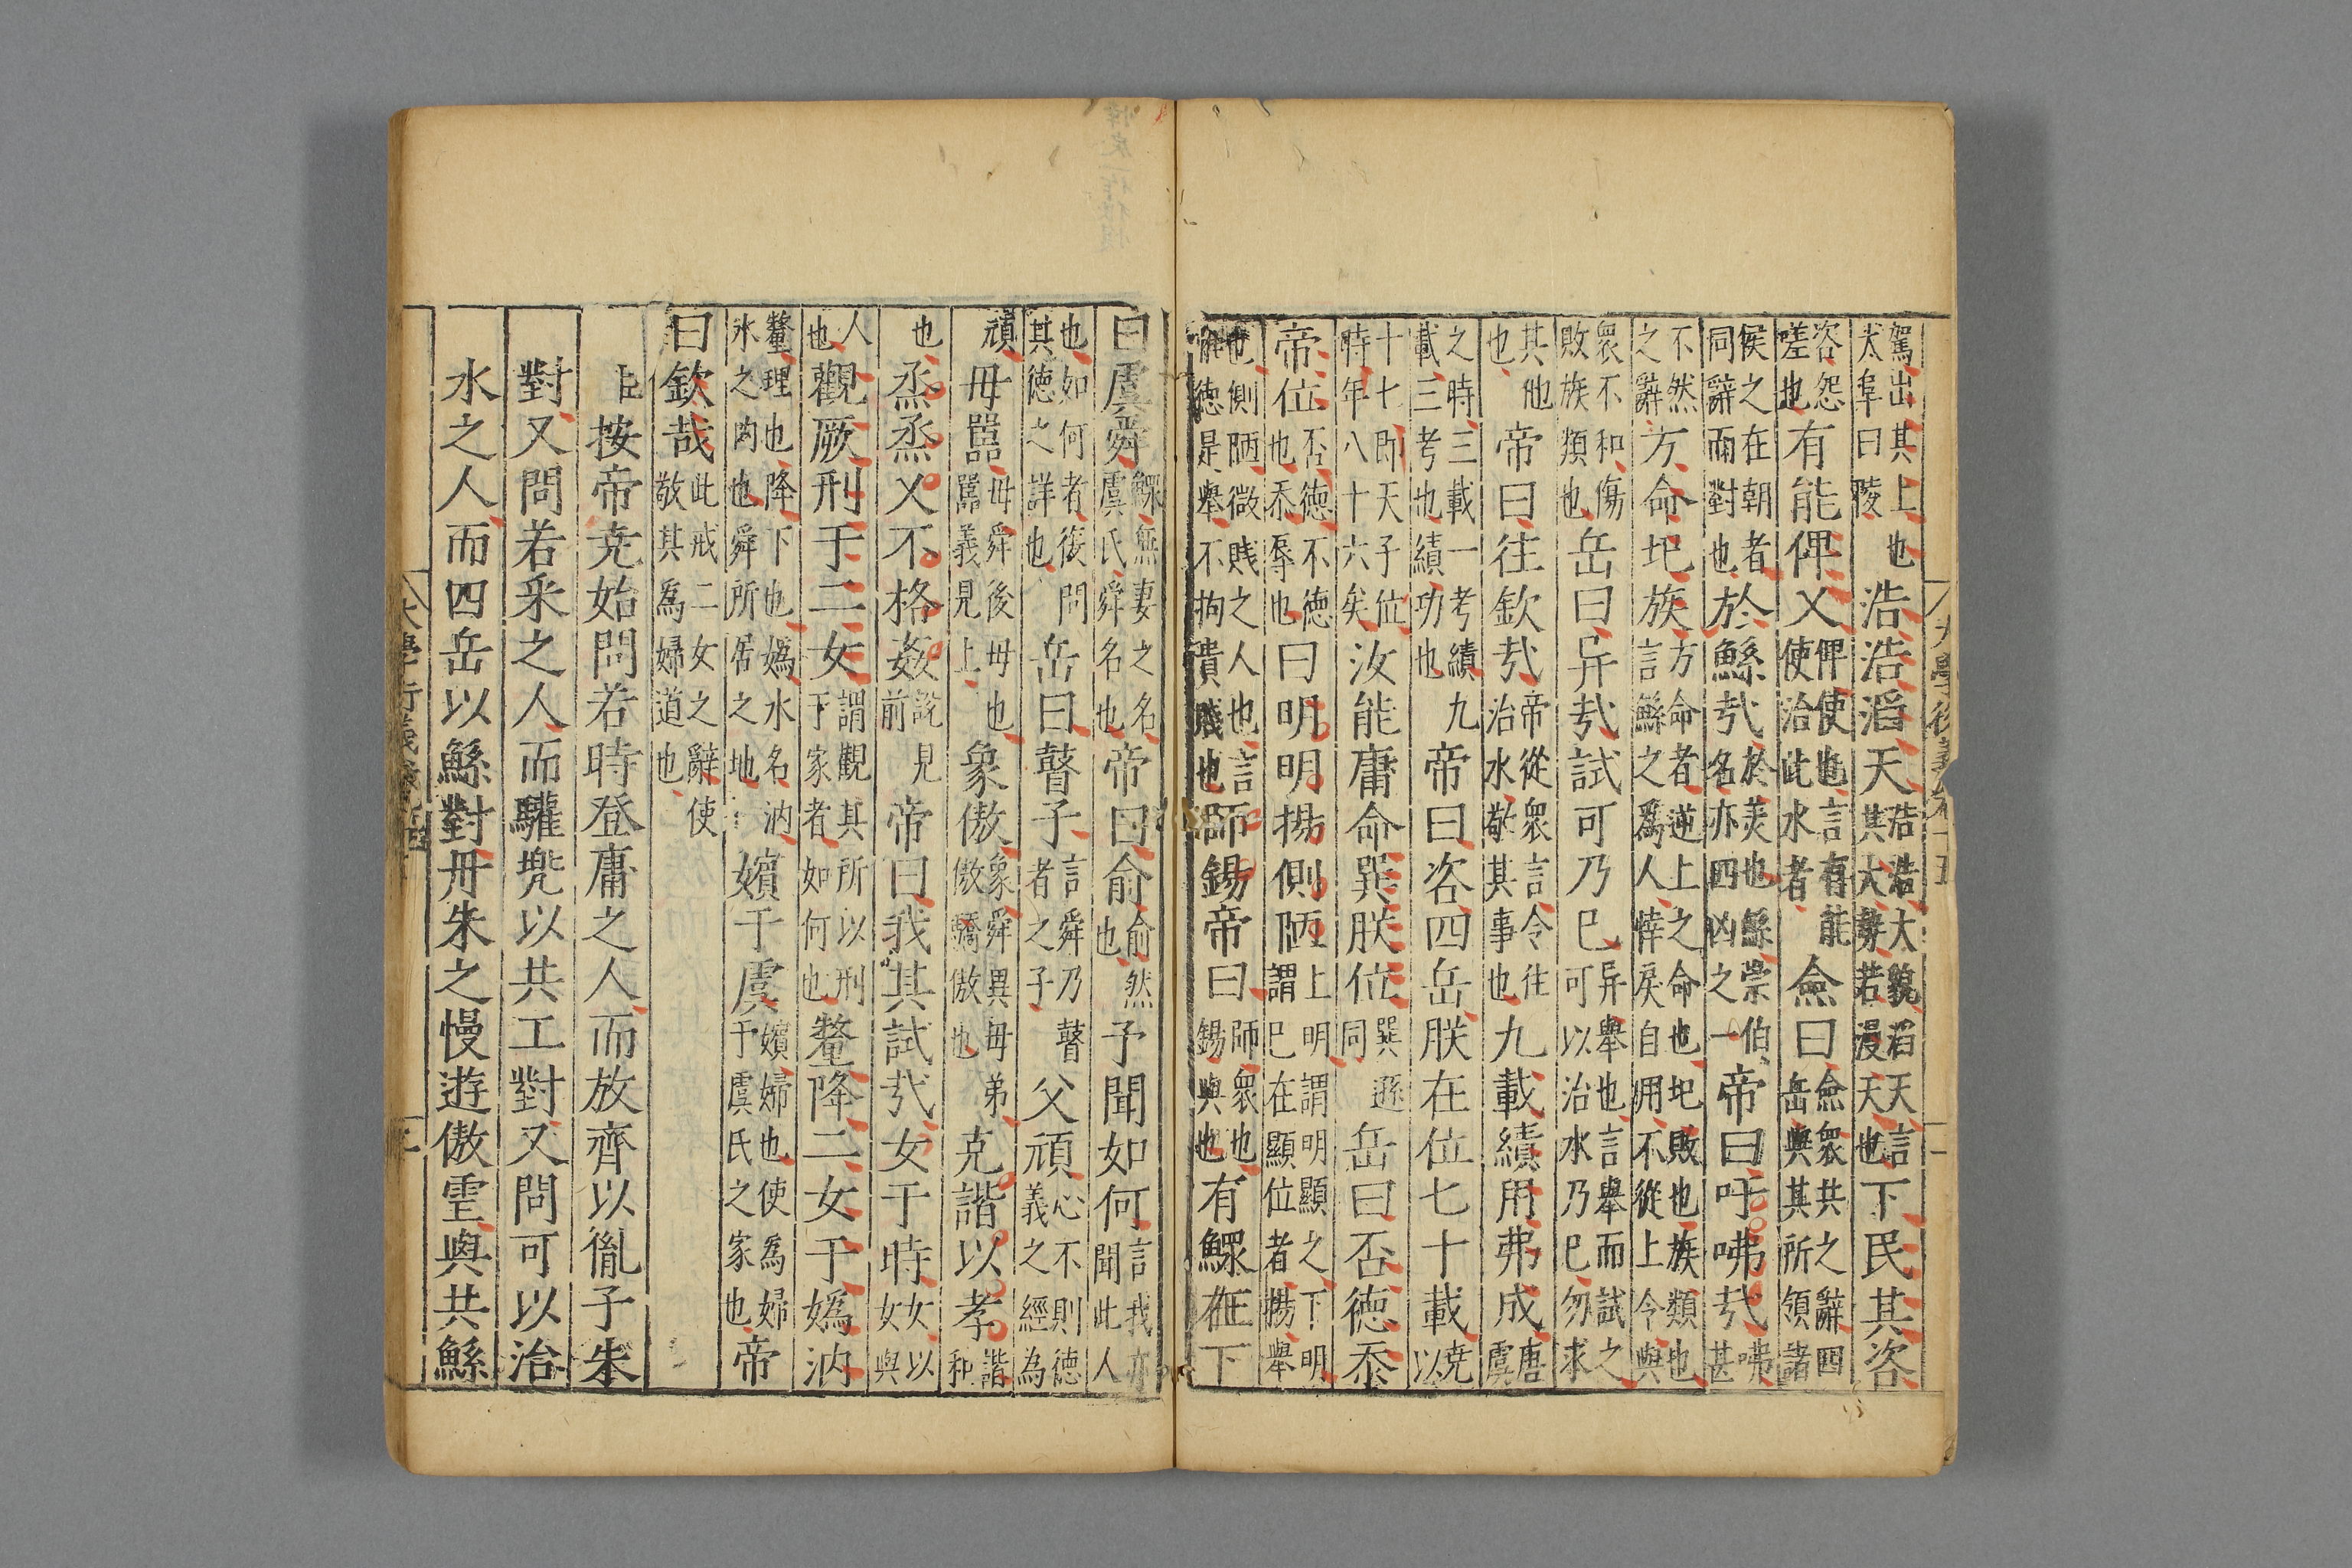 駕出其上也大阜曰陵浩浩滔天浩浩大貌滔天言其大勢若漫天也下民其咨
咨怨嗟也有能俾乂俾使也言有能使治此水者僉曰僉衆共之辭四岳與其所領諸
侯之在朝者同辭而對也於鯀哉於美也鯀崇伯名亦四凶之一帝曰吁咈哉咈甚
不然之辭方命圯族方命者逆上之命也圯敗也族類也言鯀之爲人悻戾自用不從上令與
衆不和傷敗族類也岳曰异哉試可乃已异舉也言舉而試之可以治水乃已勿求
其他也帝曰往欽哉帝從衆言令往治水敬其事也九載績用弗成唐虞
之時三載一考績九載三考也績功也帝曰咨四岳朕在位七十載堯以
十七即天子位時年八十六矣汝能庸命巽朕位巽遜同岳曰否德忝
帝位否德不德也忝辱也曰明明揚側陋上明謂明顯之下明謂已在顯位者揚舉
也側陋微賤之人也言惟德是舉不拘貴賤也師錫帝曰師衆也錫與也有鰥在下
曰虞舜鰥無妻之名虞氏舜名也帝曰俞俞然也予聞如何言我亦聞此人
也如何者復問其德之詳也岳曰瞽子言舜乃瞽者之子父頑心不則德義之經為
頑母嚚母舜後母也嚚義見上象傲象舜異母弟傲驕傲也克諧以孝諧和
也烝烝乂不格姦說見前帝曰我其試哉女于時女以女與
人也觀厥刑于二女謂觀其所以刑于家者如何也釐降二女于嬀汭
釐理也降下也嬀水名汭水之內也舜所居之地嬪于虞嬪婦也使爲婦于虞氏之家也帝
曰欽哉此戒二女之辭使敬其爲婦道也
臣按帝堯始問若時登庸之人而放齊以胤子朱
對又問若采之人而驩兜以共工對又問可以治
水之人而四岳以鯀對丹朱之慢遊傲虐與共鯀